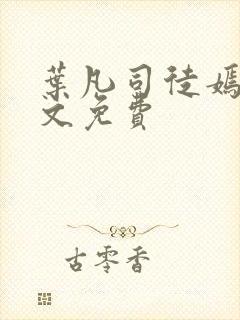 葉凡司徒嫣
文免費
古零香